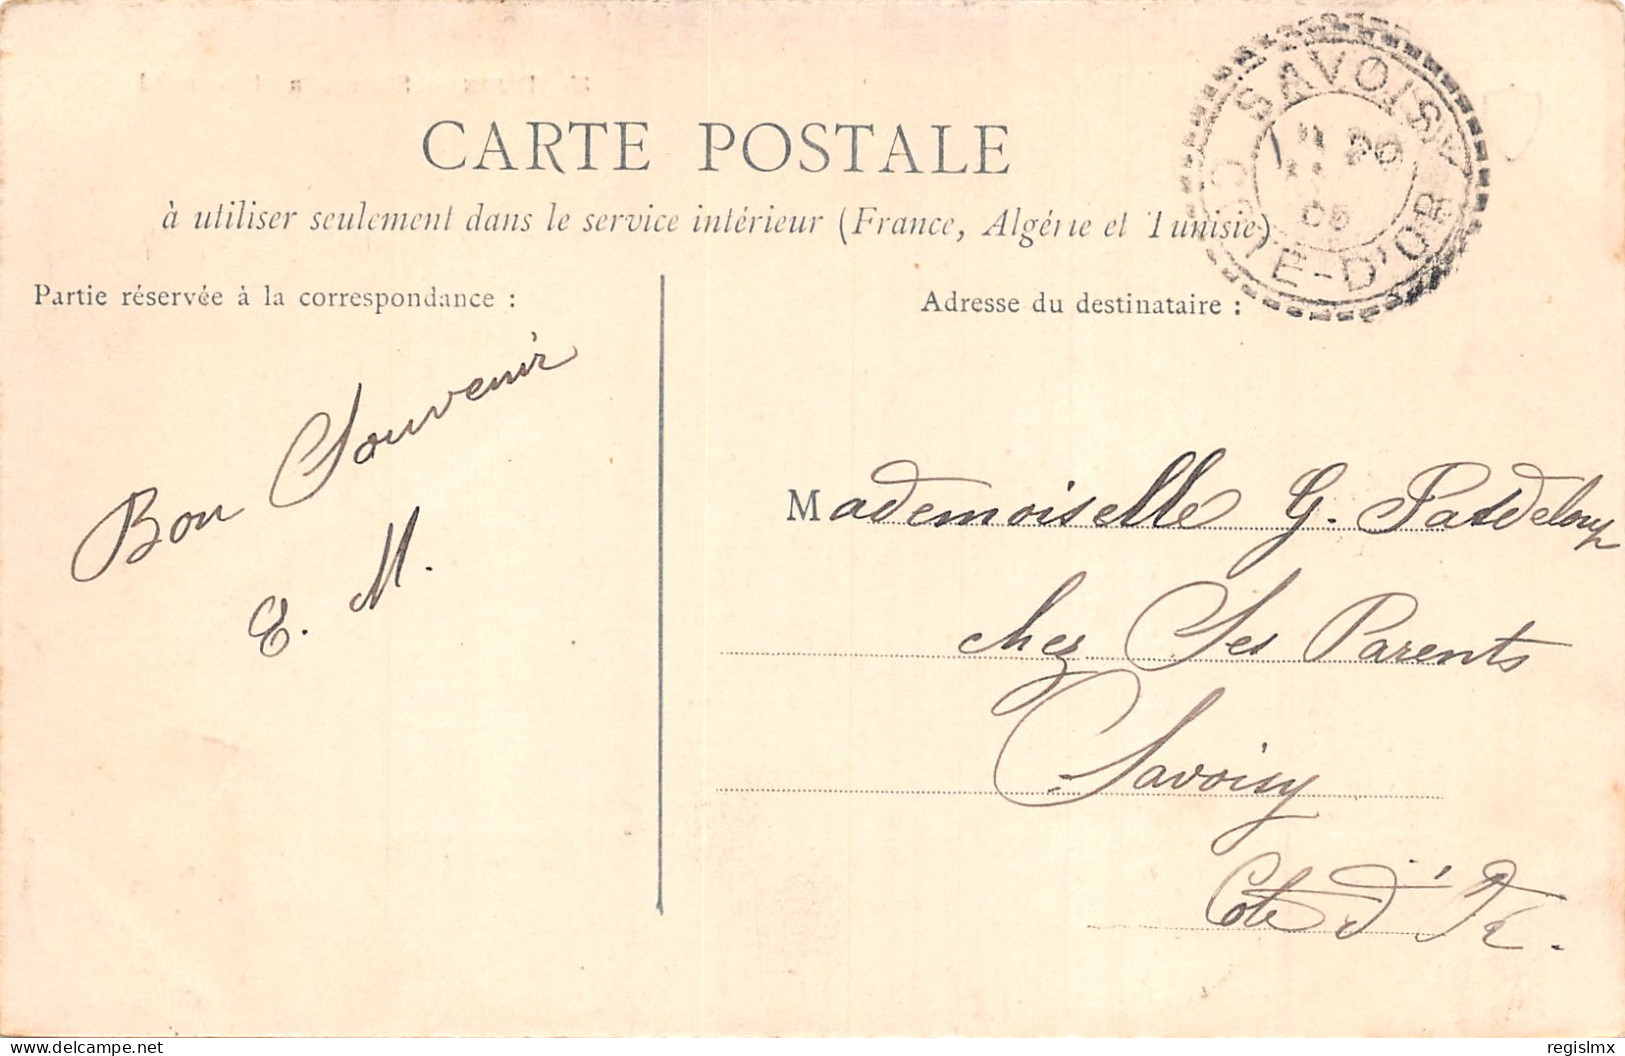 CARTE POSTALE
à utiliser seulement dans le service intérieur (France, Algérie et Tunisie)
SAVOISY
05
COTE-D'OR
Partie réservée à la correspondance :
Bon Souvenir
E. M.
Adresse du destinataire :
Mademoiselle G. Pasdeloup
chez Ses Parents
Savoisy
Cote d'Or.
delcampe.net
regislmx